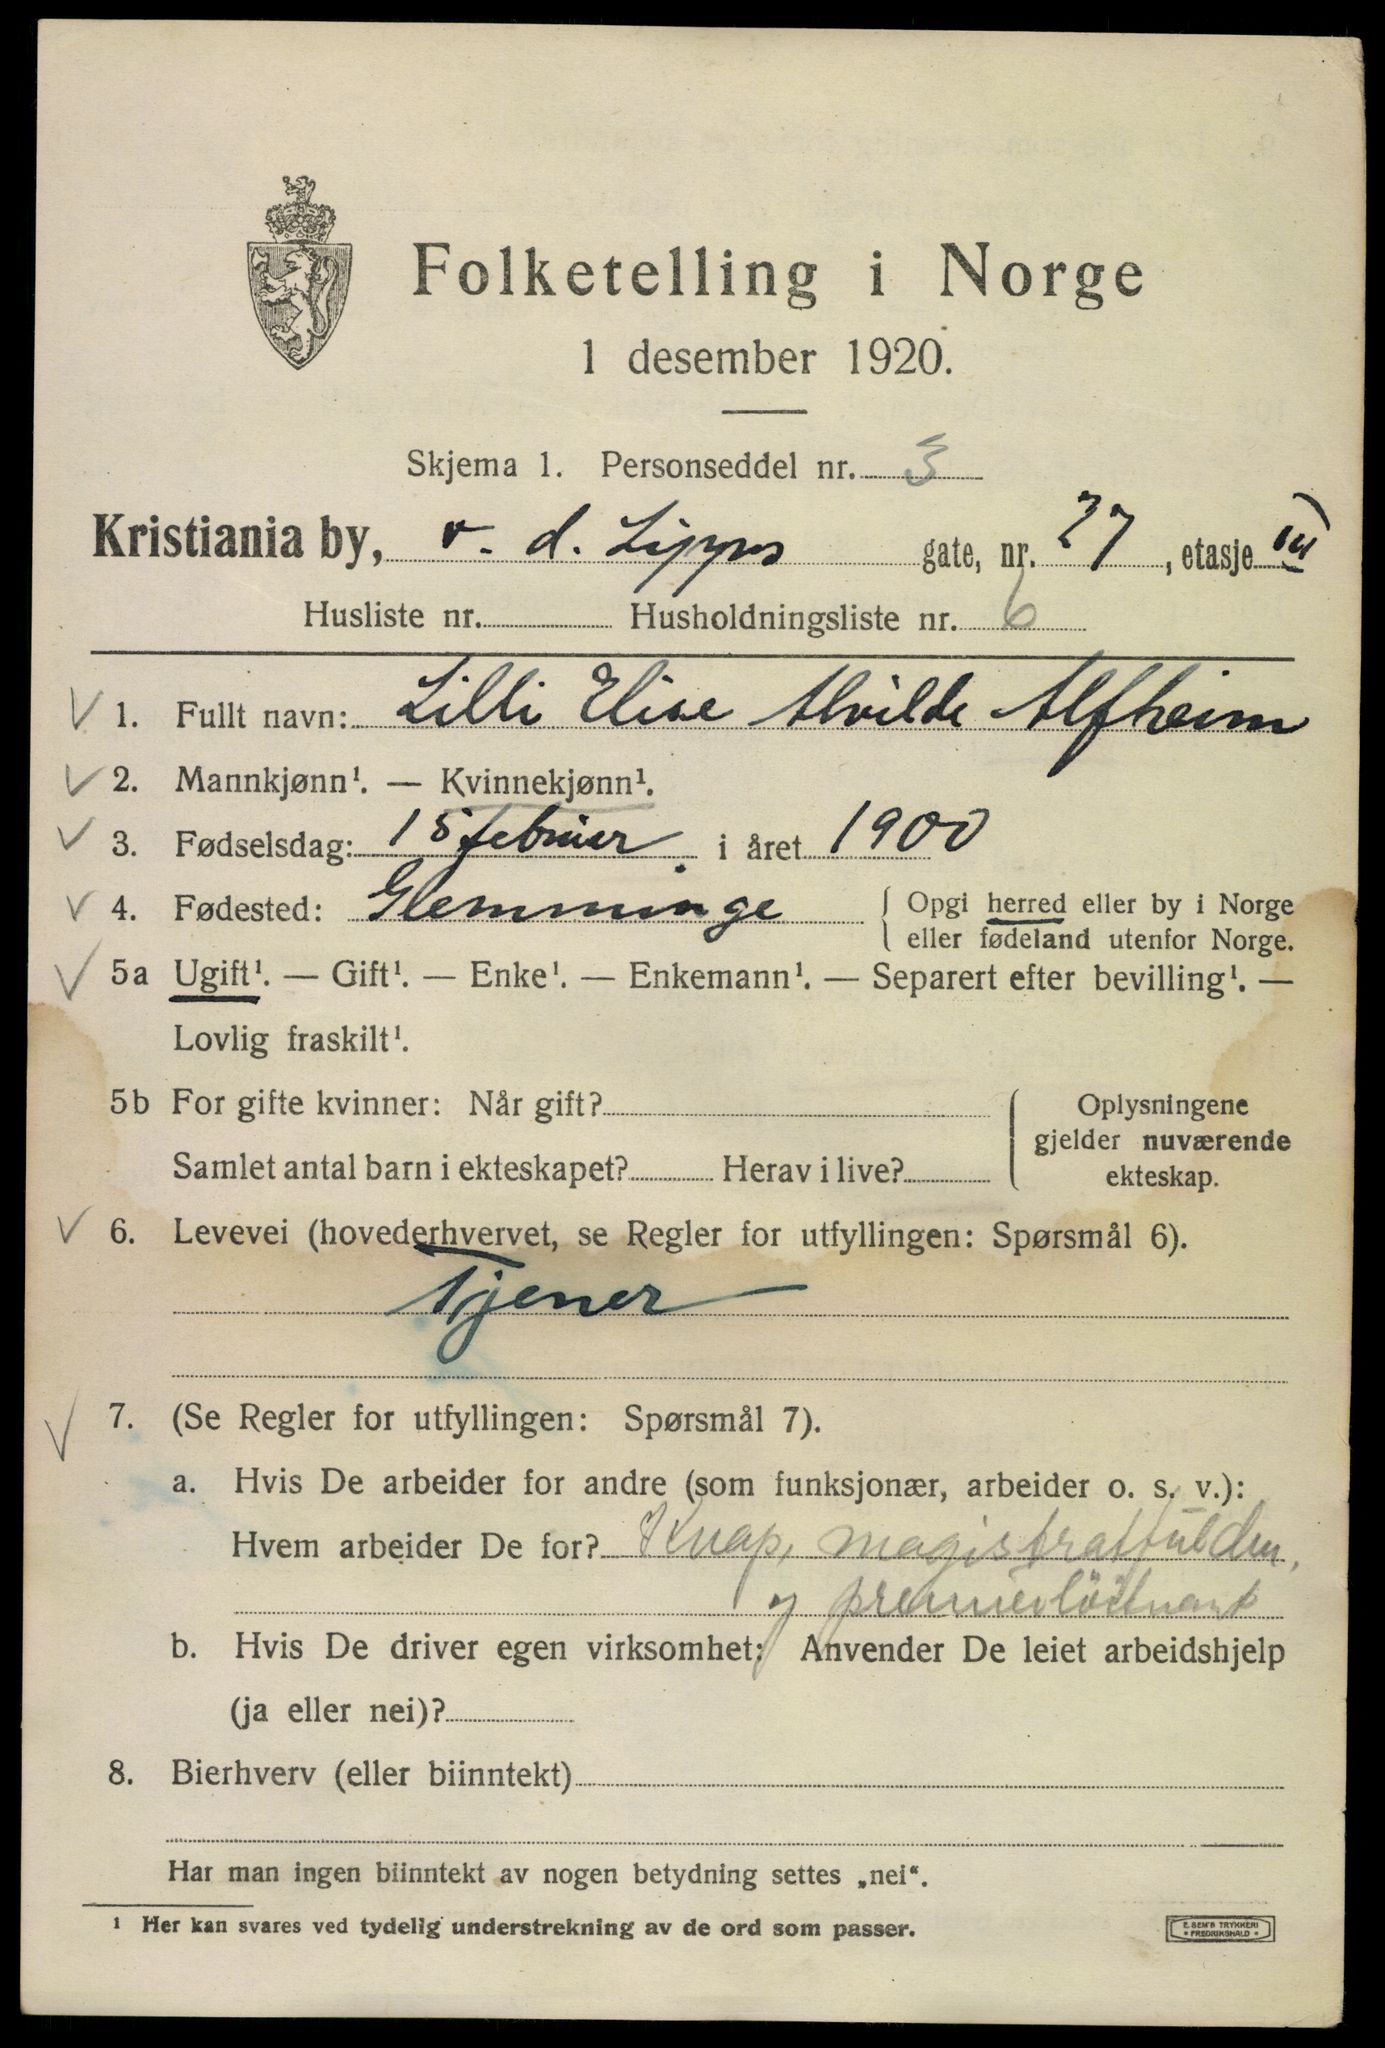 Folketelling i Norge
1 desember 1920.
Skjema 1. Personseddel nr. 3
Kristiania by, v. d. Lipps gate, nr. 27, etasje III
Husliste nr. Husholdningsliste nr. 6
1. Fullt navn: Lilli Elise Alvilde Alfheim
2. Mannkjønn¹. — Kvinnekjønn¹.
3. Fødselsdag: 15 februer i året 1900
4. Fødested: Glemminge { Opgi herred eller by i Norge
eller fødeland utenfor Norge.
5a Ugift¹. — Gift¹. — Enke¹. — Enkemann¹. — Separert efter bevilling¹. —
Lovlig fraskilt¹.
5b For gifte kvinner: Når gift? { Oplysningene
gjelder nuværende
Samlet antal barn i ekteskapet? Herav i live? ekteskap.
6. Levevei (hovederhvervet, se Regler for utfyllingen: Spørsmål 6).
Tjener
7. (Se Regler for utfyllingen: Spørsmål 7).
a. Hvis De arbeider for andre (som funksjonær, arbeider o. s. v.):
Hvem arbeider De for? Knap, magistratfulden,
og premierlöitnant
b. Hvis De driver egen virksomhet: Anvender De leiet arbeidshjelp
(ja eller nei)?
8. Bierhverv (eller biinntekt)
Har man ingen biinntekt av nogen betydning settes „nei“.
¹ Her kan svares ved tydelig understrekning av de ord som passer.
E. SEM'S TRYKKERI
FREDRIKSHALD